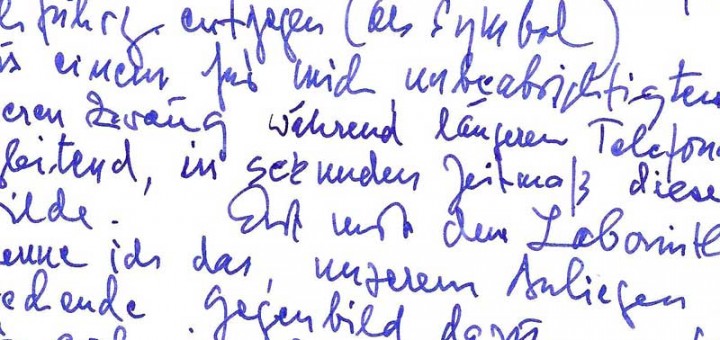 entgegen (als Symbol)
s einem für mich unbeabsichtigten
eren Zwang während längeren Telefon
leitend, in sekunden Zeitmaß diese
ilde. Erst mit dem Labyrinth
enne ich das, unserem Anliegen
echende Gegenbild dazu